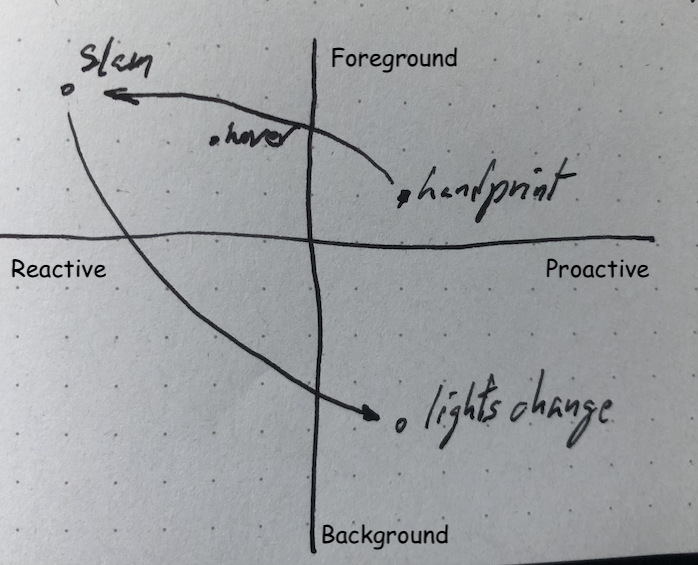 slam
Foreground
hover
handprint
Reactive
Proactive
lights change
Background